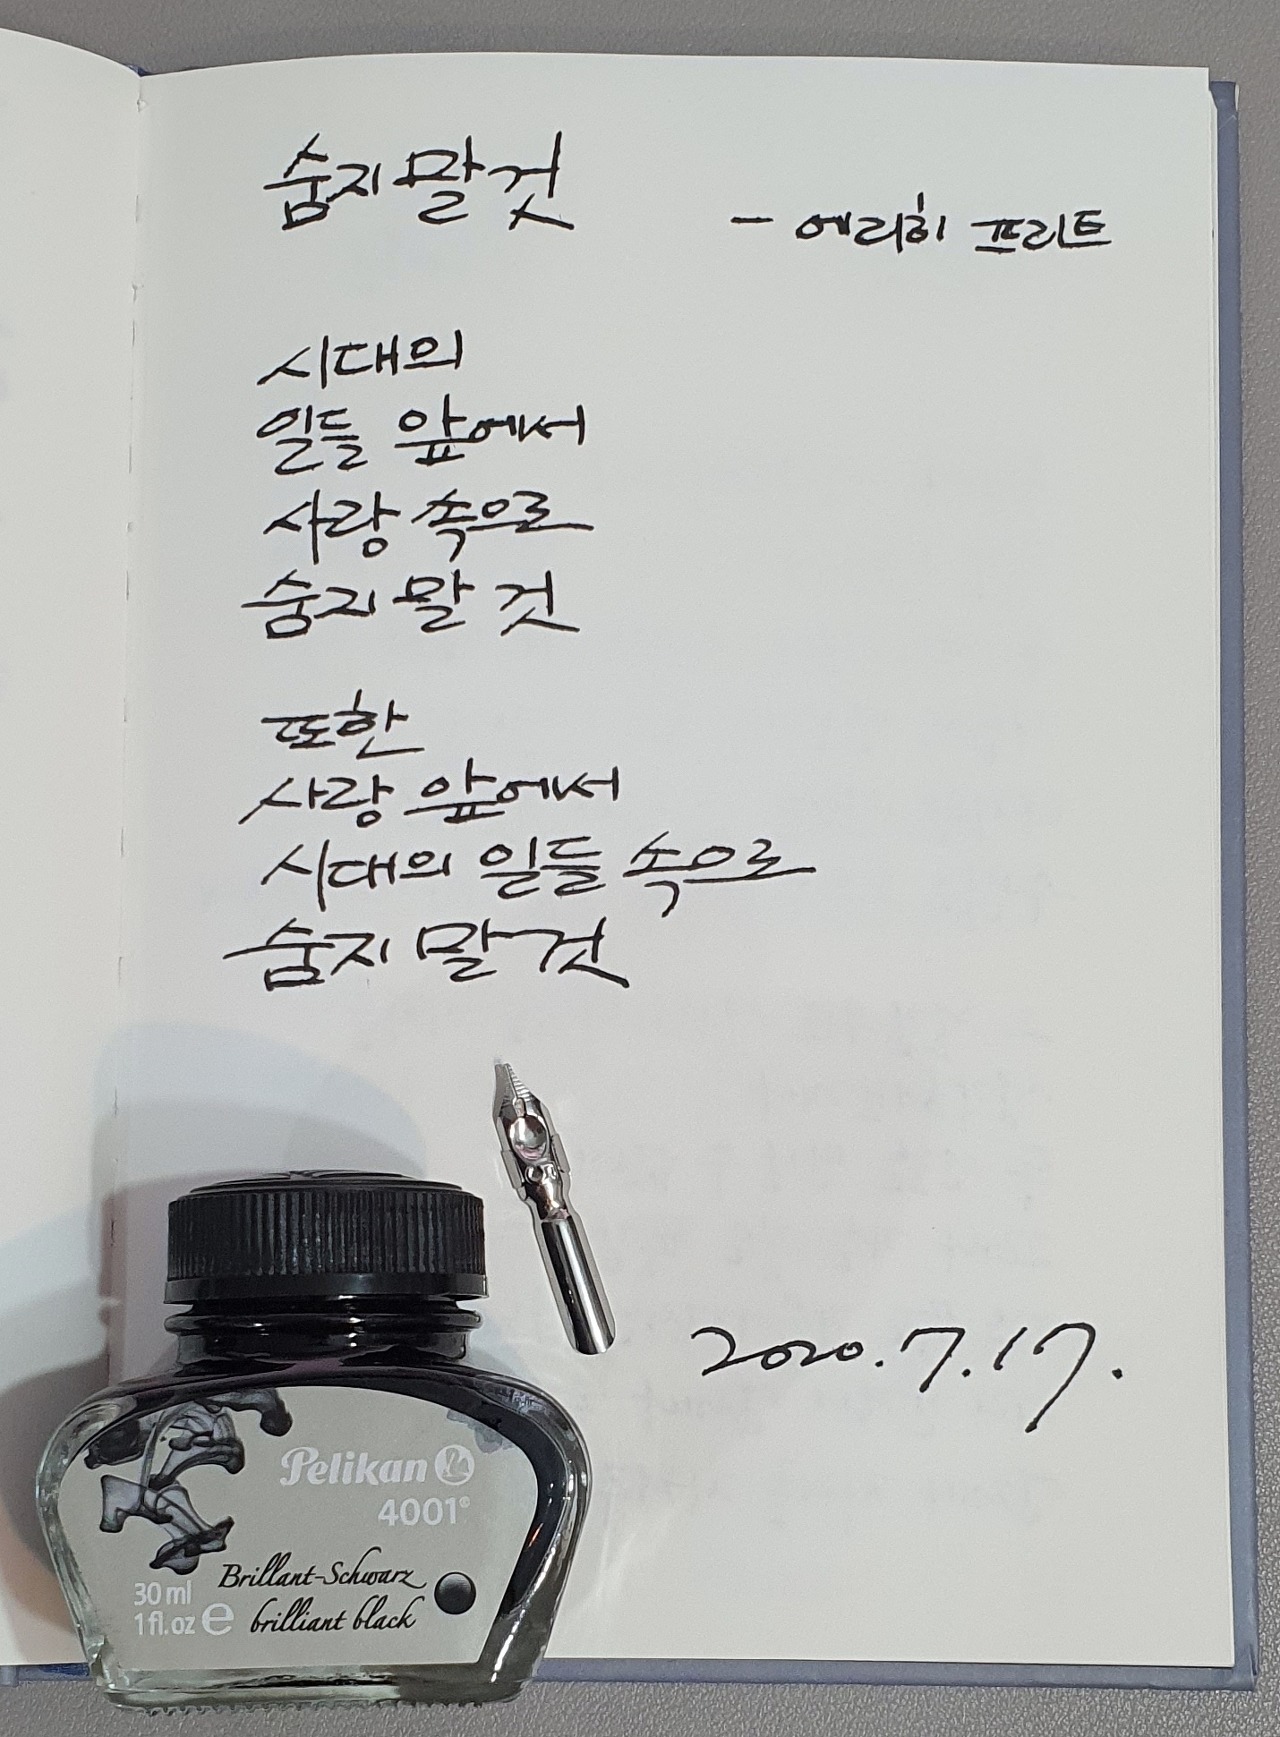 숨지 말 것
- 에리히 프리트
시대의
일들 앞에서
사랑 속으로
숨지 말 것
또한
사랑 앞에서
시대의 일들 속으로
숨지 말 것
2020. 7. 17.
Pelikan
4001®
Brillant-Schwarz
brilliant black
30 ml
1 fl. oz e